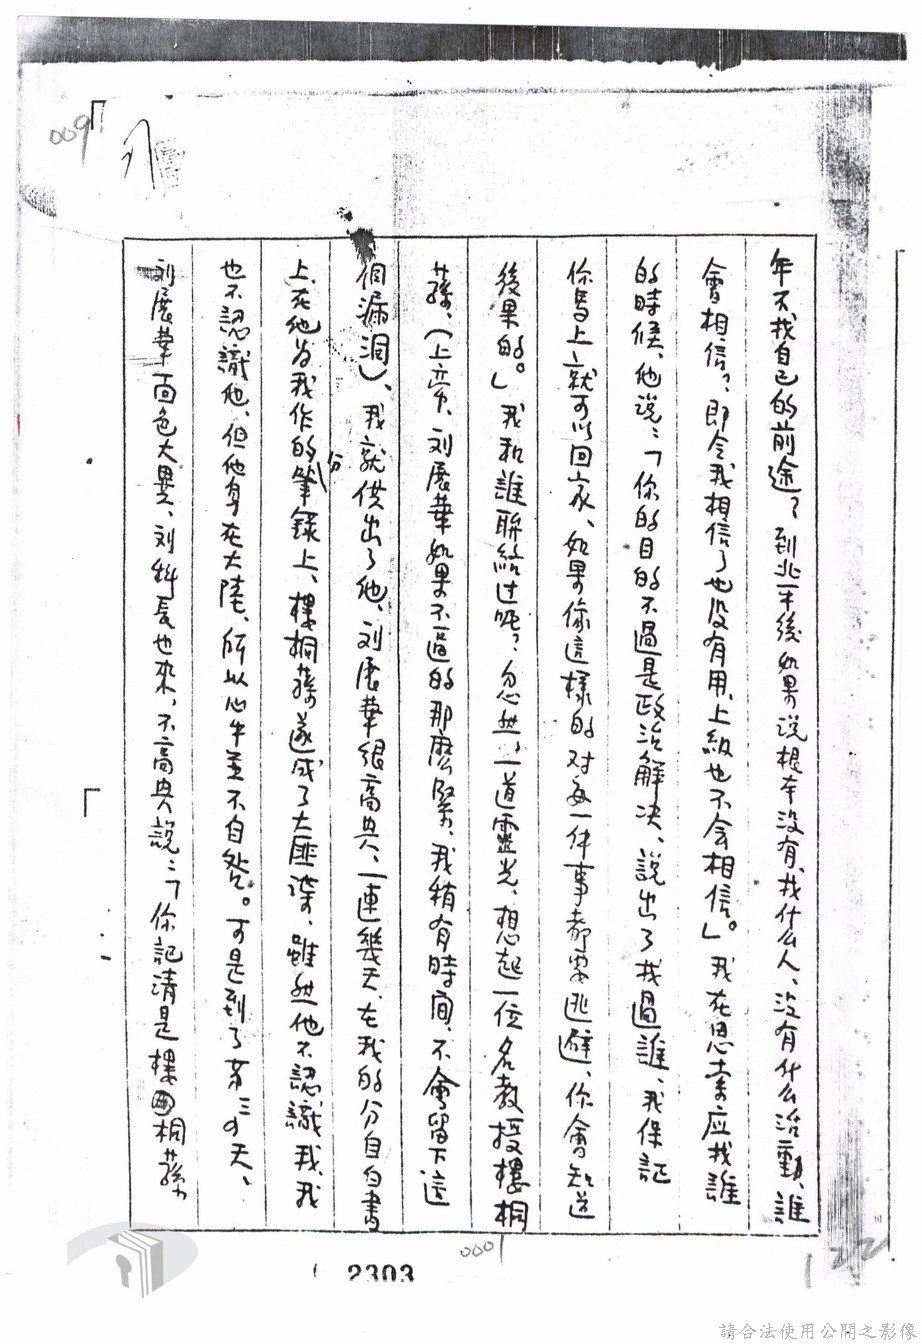 009
年不找自己的前途了到北平後如果说根本没有找什么人、没有什么活動、誰
會相信？、即令我相信了也没有用、上級也不会相信。」我在思索应找誰
的時候、他说：「你的目的不過是政治解决、説出了找過誰、我保証
你馬上就可以回家、如果像這樣的对每一件事都要逃避、你會知道
後果的。」我和誰聯絡过呢？忽然、一道靈光、想起一位名教授樓桐
蓀、(上帝、刘展華如果不逼的那麽緊、我稍有時间、不會留下這
個漏洞)、我就供出了他、刘展華很高兴、一連幾天、在我的分自白書
上、在他为我作的分筆録上、樓桐蓀遂成了大匪諜、雖然他不認識我、我
也不認識他、但他身在大陸、所以心中並不自咎。可是到了第三の天、
刘展華面色大異、刘科長也來、不高興說：「你記清是樓桐蓀
0001
2303
122
請合法使用公開之影像